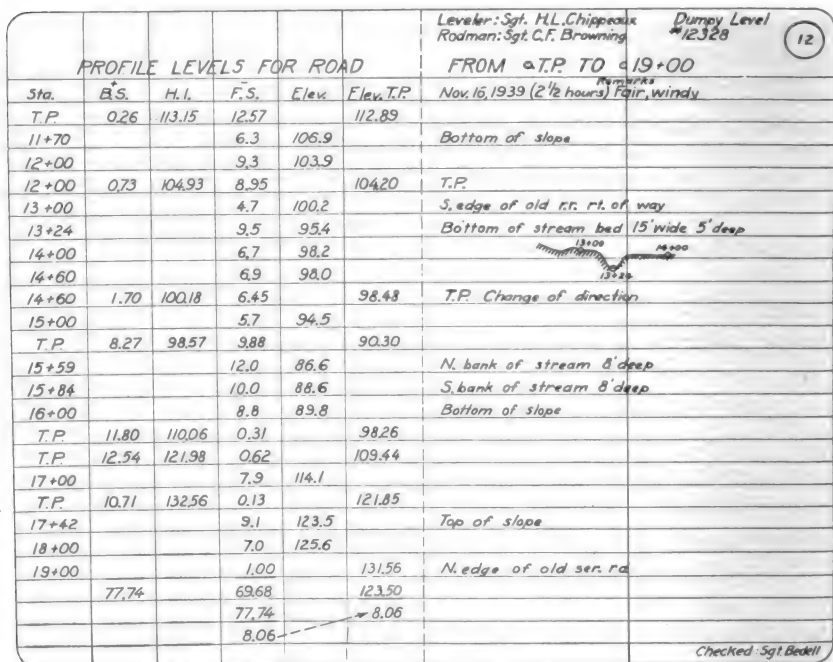 Leveler: Sgt. H.L. Chippeaux Dumpy Level
Rodman: Sgt. C.F. Browning #12328
12
PROFILE LEVELS FOR ROAD FROM a T.P. TO a 19+00
Remarks
Sta. B.S. + H.I. F.S. - Elev. Elev. T.P. Nov. 16, 1939 (2 1/2 hours) Fair, windy
T.P. 0.26 113.15 12.57 112.89
11+70 6.3 106.9 Bottom of slope
12+00 9.3 103.9
12+00 0.73 104.93 8.95 104.20 T.P.
13+00 4.7 100.2 S. edge of old r.r. rt. of way
13+24 9.5 95.4 Bottom of stream bed 15' wide 5' deep
14+00 6.7 98.2 13+00 14+00
14+60 6.9 98.0 13+24
14+60 1.70 100.18 6.45 98.48 T.P. Change of direction
15+00 5.7 94.5
T.P. 8.27 98.57 9.88 90.30
15+59 12.0 86.6 N. bank of stream 8' deep
15+84 10.0 88.6 S. bank of stream 8' deep
16+00 8.8 89.8 Bottom of slope
T.P. 11.80 110.06 0.31 98.26
T.P. 12.54 121.98 0.62 109.44
17+00 7.9 114.1
T.P. 10.71 132.56 0.13 121.85
17+42 9.1 123.5 Top of slope
18+00 7.0 125.6
19+00 1.00 131.56 N. edge of old ser. rd
77.74 69.68 123.50
77.74 8.06
8.06
Checked: Sgt. Bedell